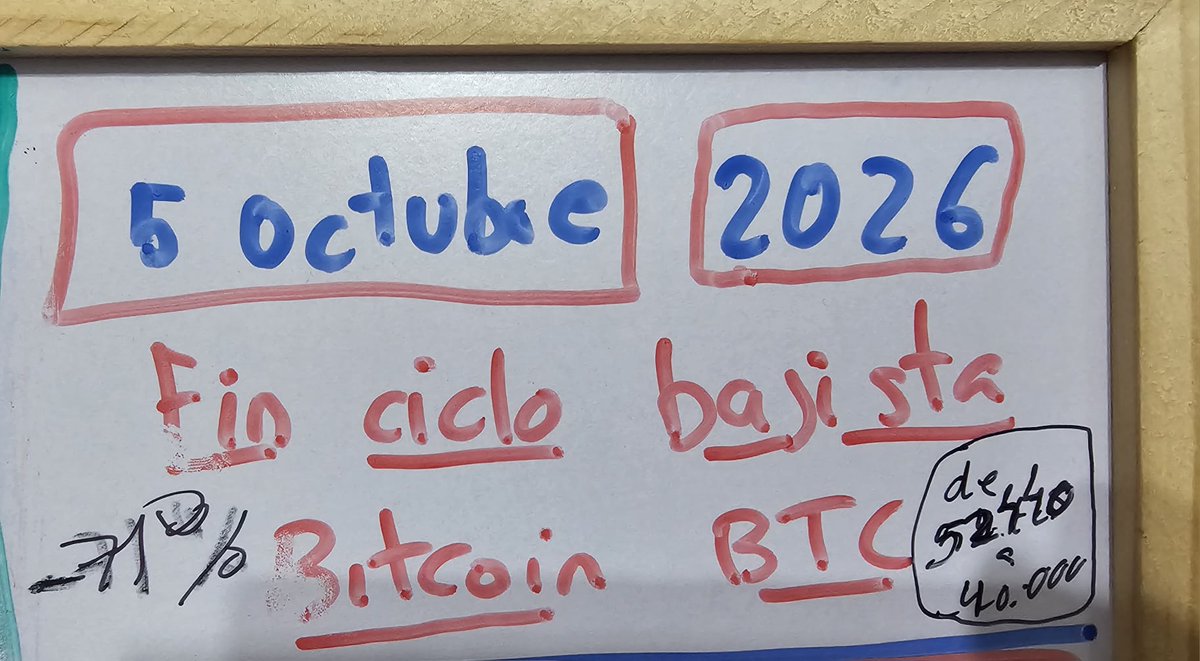 5 Octubre 2026
Fin ciclo bajista
Bitcoin BTC
de
a
40.000